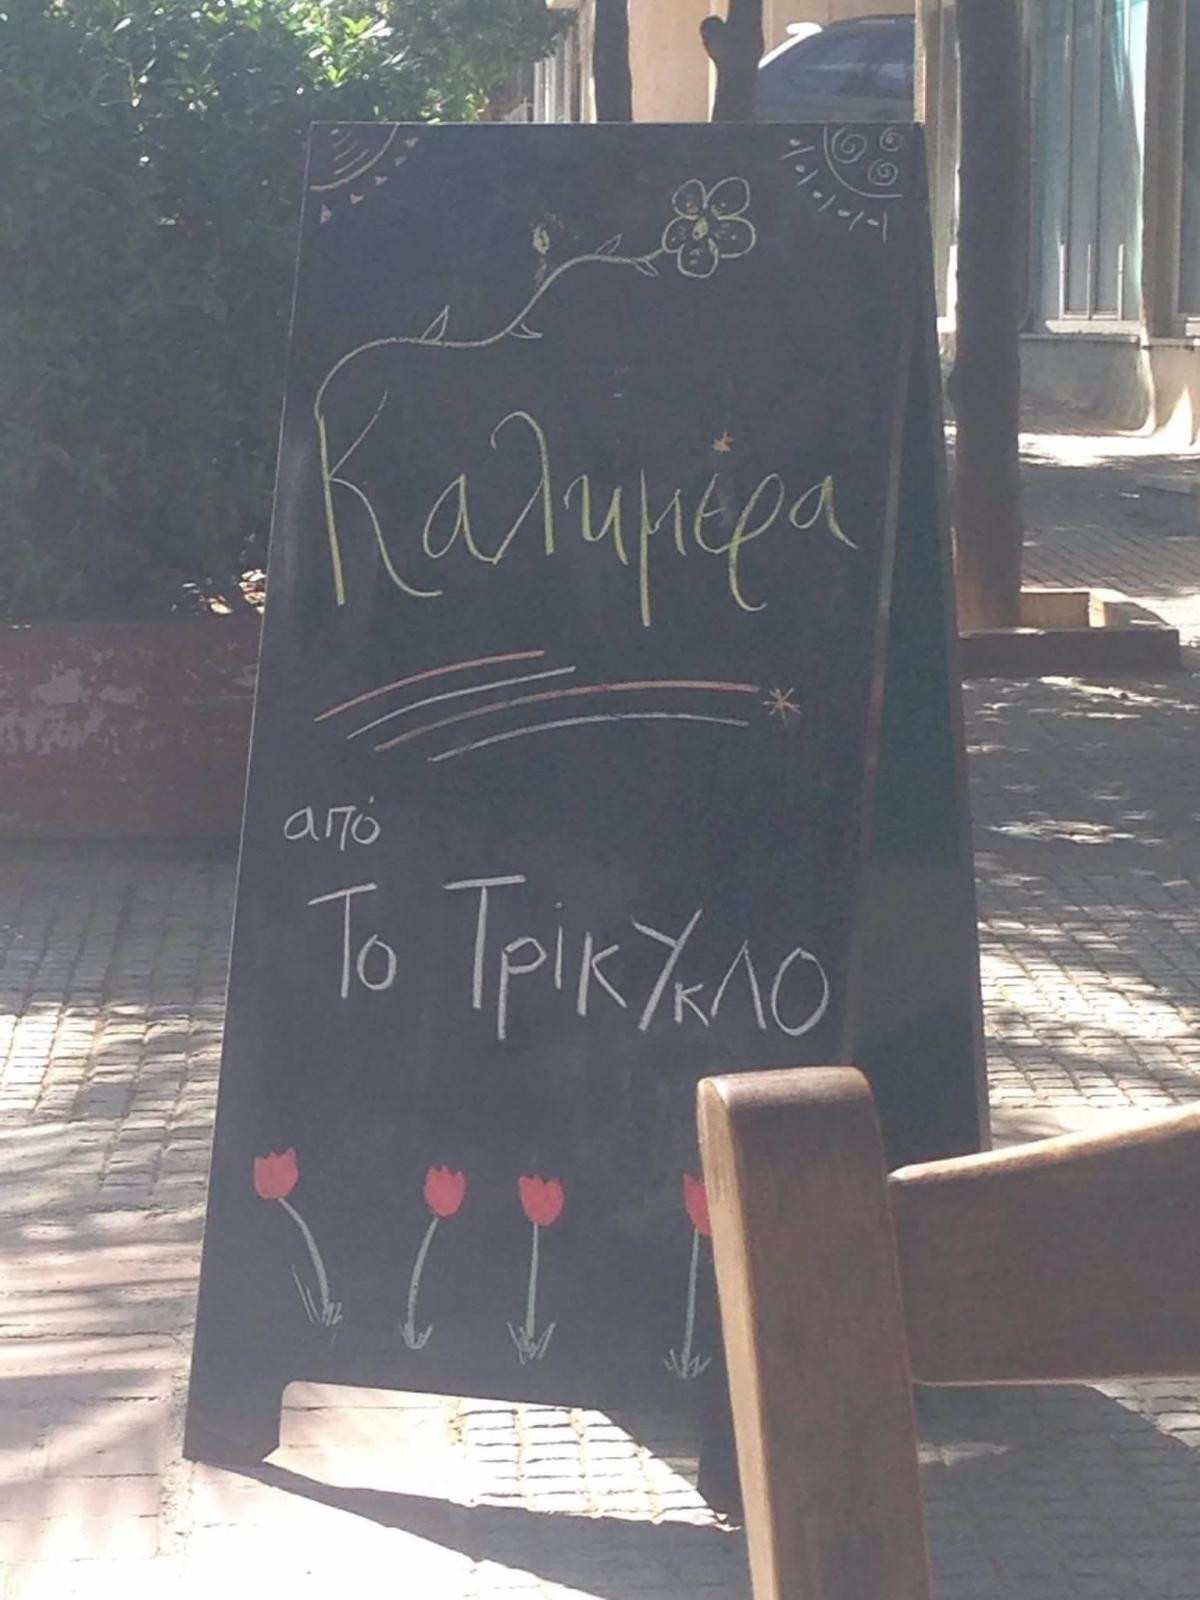 Καλημέρα
από
Το Τρίκυκλο